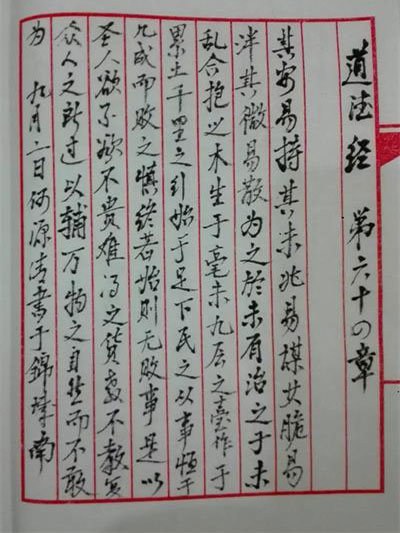 道德经 第六十四章
其安易持其未兆易谋其脆易
泮其微易散为之於未有治之于未
乱合抱之木生于毫末九层之臺作于
累土千里之行始于足下民之从事恒于
几成而败之慎终若始则无败事是以
圣人欲不欲不贵难得之货教不教复
众人之所过以辅万物之自然而不敢
为 九月二日何源清书于錦南